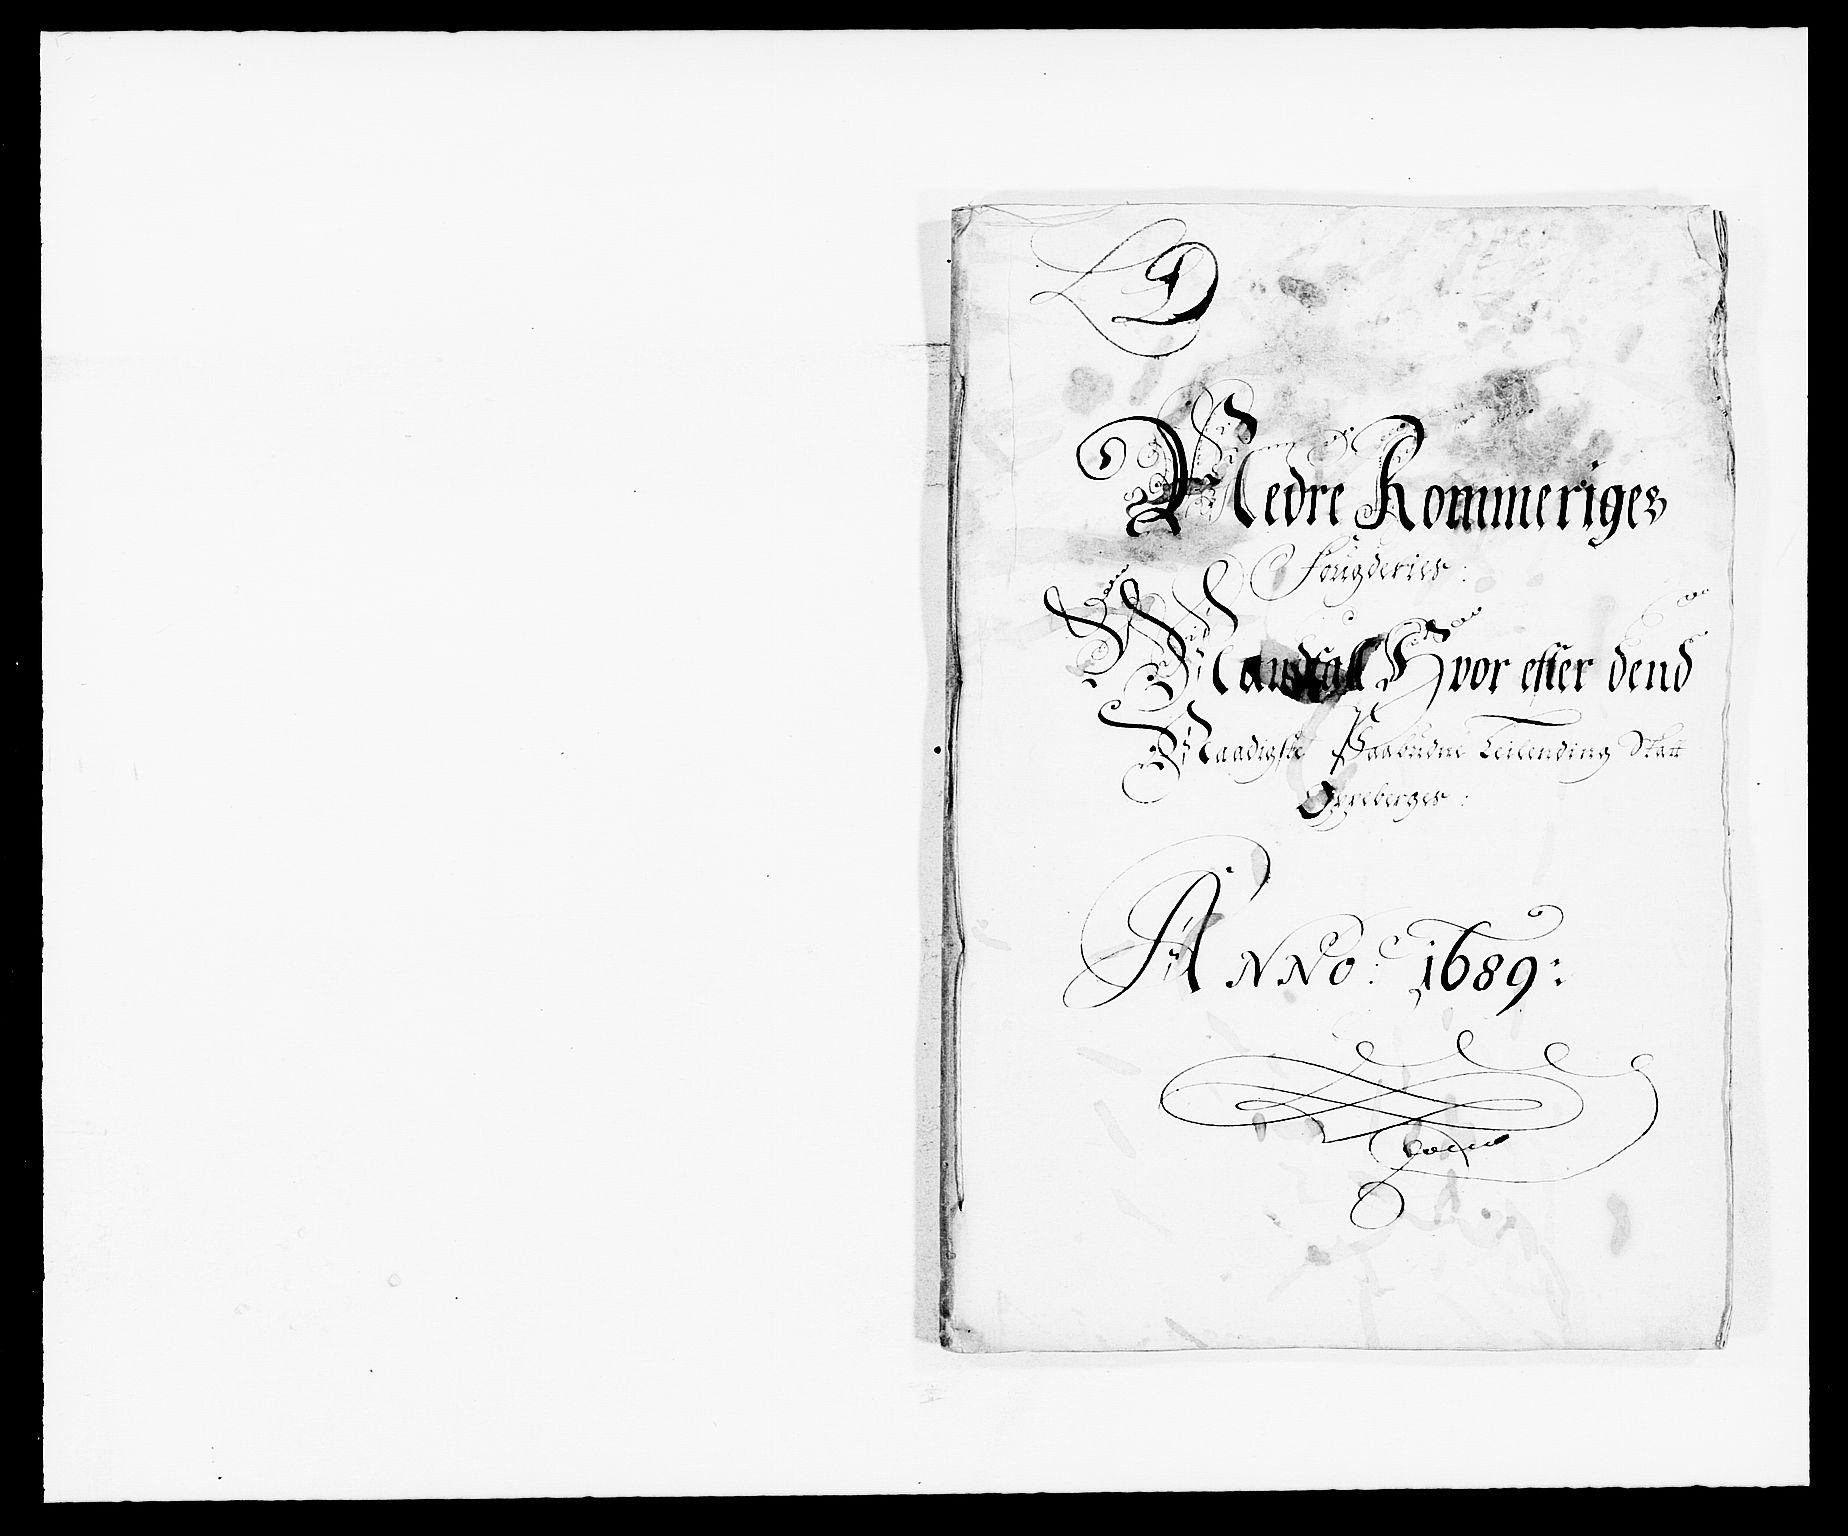 D
Nedre Rommeriges
Fougderies:
Mandtall Hvor efter dend
Naadigste Paabudne Leilending Skatt
Opreberges:
ANNO: 1689: